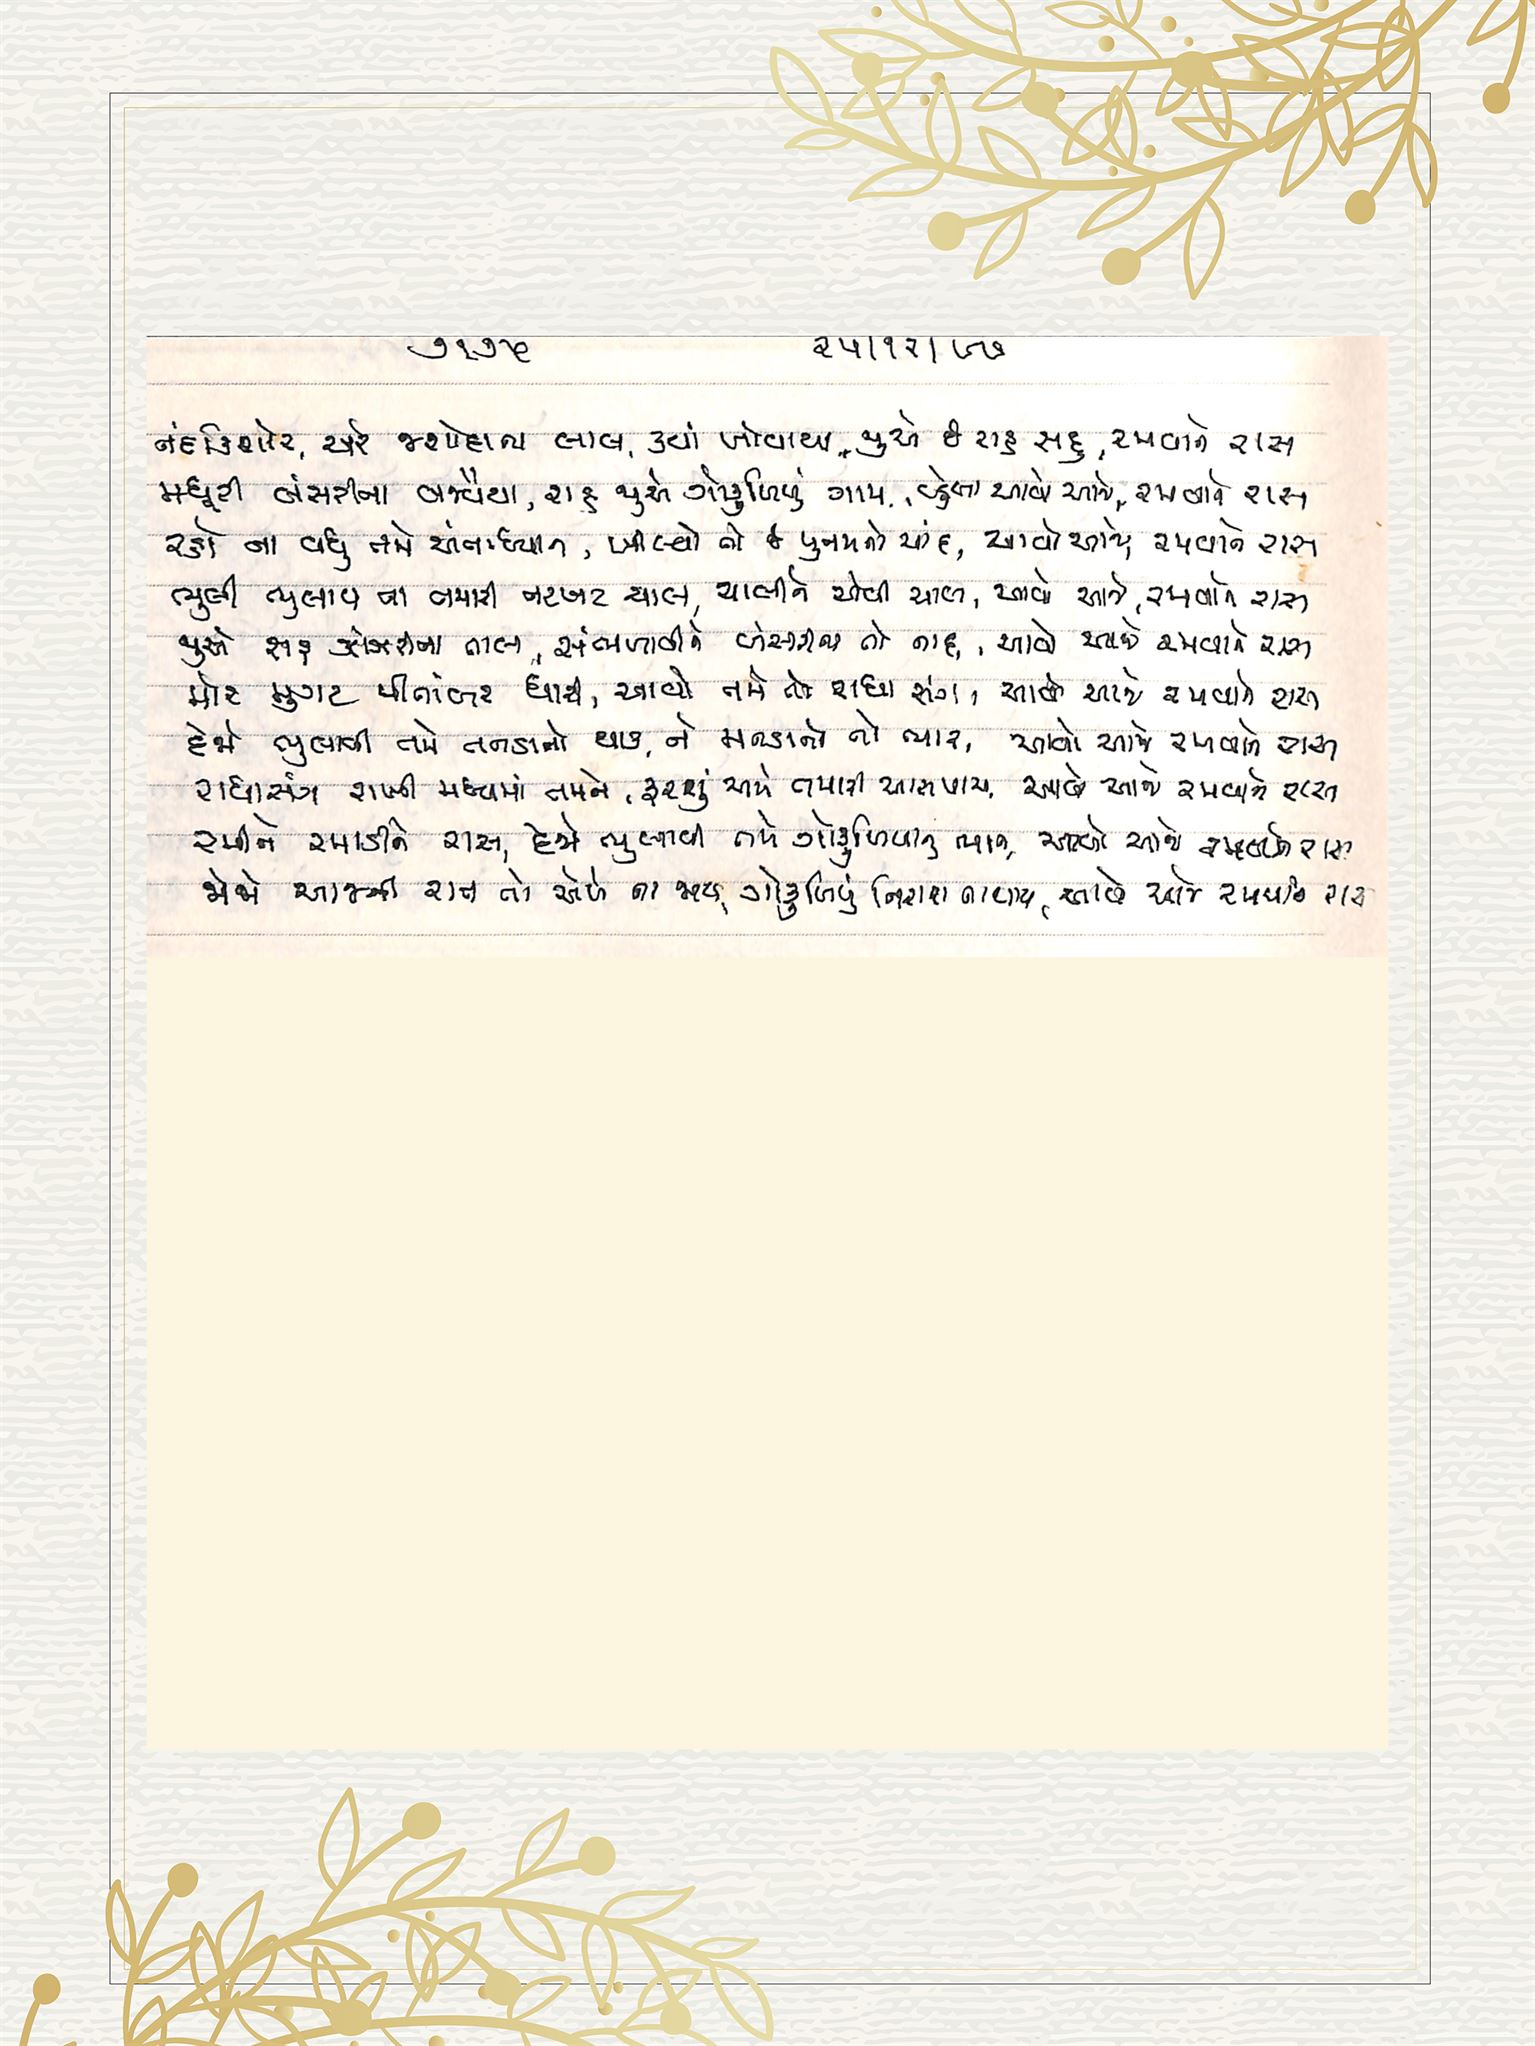 ૭૧૭૫ ૨૫/૧૨/૯૭
નંદકિશોર, અરે જશોદાના લાલ, ક્યાં ખોવાયા, જુએ છે રાહ સહુ, રમવાને રાસ
મધૂરી બંસરીના બજવૈયા, રાહ જુએ ગોકુળિયું ગામ, વ્હેલા આવો આજે, રમવાને રાસ
રહો ના વધુ તમે અંતર્ધ્યાન, ખીલ્યો તો છે પુનમનો ચાંદ, આવો આજે, રમવાને રાસ
ભુલી ભુલાય ના તમારી નટખટ ચાલ, ચાલીને એવી ચાલ, આવો આજે, રમવાને રાસ
જુએ સહુ ઝાંઝરીના તાલ, સંભળાવીને બંસરીના તો નાદ, આવો આજે રમવાને રાસ
મોર મુગટ પીતાંબર ધારી, આવો તમે તો રાધા સંગ, આવો આજે રમવાને રાસ
દેજો ભુલાવી તમે તનડાનો થાક, ને મનડાનો તો ભાર, આવો આજે રમવાને રાસ
રાધાસંગ રાખી મધ્યમાં તમને, ફરશું અમે તમારી આસપાસ, આવો આજે રમવાને રાસ
રમીને રમાડીને રાસ, દેજો ભુલાવી તમે ગોકુળિયાનું ભાન, આવો આજે રમવાને રાસ
જોજો આજની રાત તો એળે ના જાય, ગોકુળિયું નિરાશ ના થાય, આવો આજે રમવાને રાસ